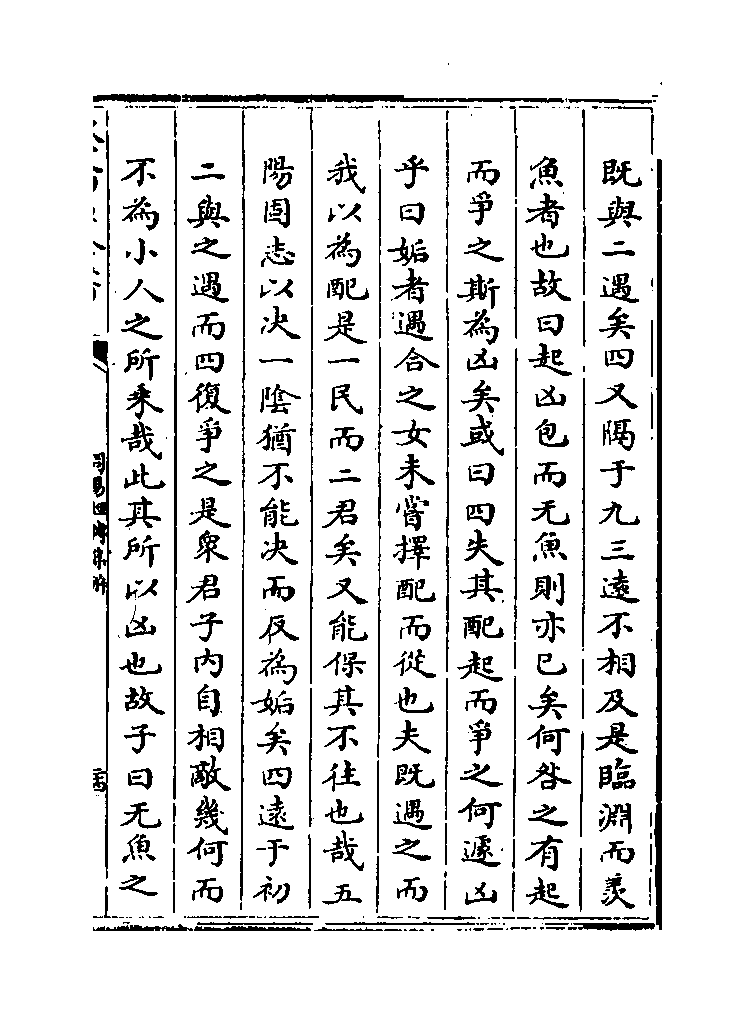 既與二遇矣四又隔于九三遠不相及是臨淵而羨
魚者也故曰起凶包而无魚則亦已矣何咎之有起
而爭之斯為凶矣或曰四失其配起而爭之何遽凶
乎曰姤者遇合之女未嘗擇配而從也夫既遇之而
我以為配是一民而二君矣又能保其不往也哉五
陽固志以决一陰猶不能决而反為姤矣四遠于初
二與之遇而四復爭之是衆君子内自相敵幾何而
不為小人之所乘哉此其所以凶也故子曰无魚之
周易 集解